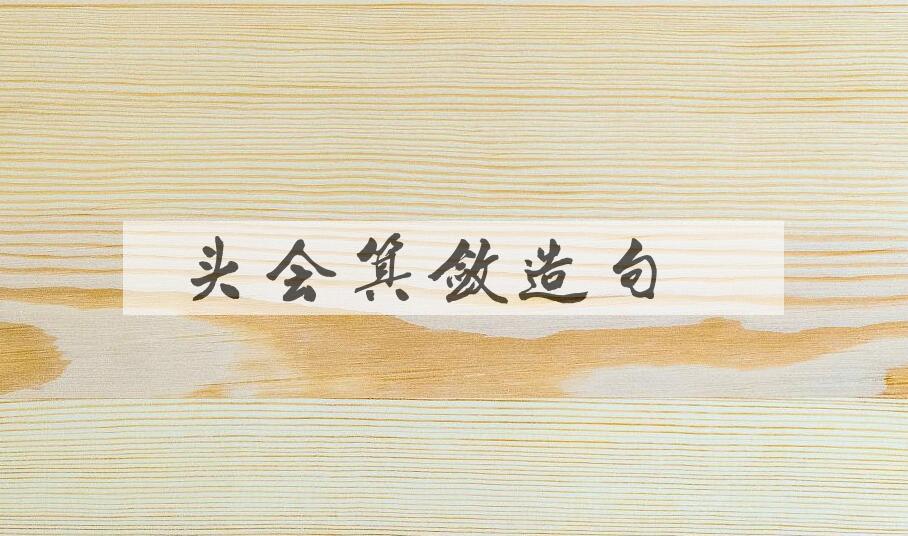 头会箕敛造句